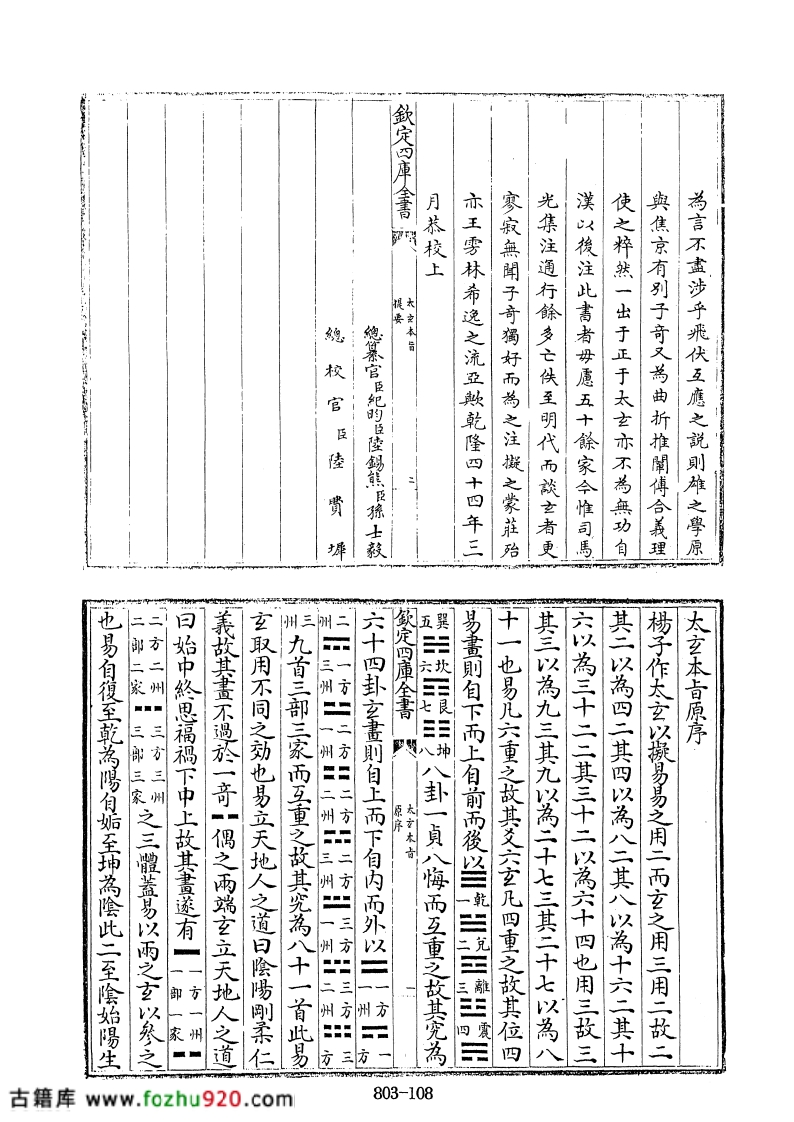 為言不盡涉乎飛伏互應之説則雄之學原
與焦京有别子奇又為曲折推闡傅合義理
使之粹然一出于正于太玄亦不為無功自
漢以後注此書者毋慮五十餘家今惟司馬
光集注通行餘多亡佚至明代而談玄者更
寥寂無聞子奇獨好而為之注擬之蒙莊殆
亦王雱林希逸之流亞歟乾隆四十四年三
月恭校上
欽定四庫全書
太玄本旨
提要
二
總纂官臣紀昀臣陸錫熊臣孫士毅
總校官臣陸費墀
太玄本旨原序
楊子作太玄以擬易易之用二而玄之用三用二故二
其二以為四二其四以為八二其八以為十六二其十
六以為三十二二其三十二以為六十四也用三故三
其三以為九三其九以為二十七三其二十七以為八
十一也易凡六重之故其爻六玄凡四重之故其位四
易畫則自下而上自前而後以☰乾一☱兌二☲離三☳震四
☴巽五☵坎六☶艮七☷坤八八卦一貞八悔而互重之故其究為
欽定四庫全書
太玄本旨
原序
一
六十四卦玄畫則自上而下自内而外以一方一州一方
二州一方三州二方一州二方二州二方三州三方一州三方二州三方
三州九首三部三家而互重之故其究為八十一首此易
玄取用不同之効也易立天地人之道曰陰陽剛柔仁
義故其畫不過於一奇⚋偶之兩端玄立天地人之道
曰始中終思福禍下中上故其畫遂有一方一州一部一家
二方二州二部二家三方三州三部三家之三體蓋易以兩之玄以參之
也易自復至乾為陽自姤至坤為陰此二至陰始陽生
803-108
古籍库 www.fozhu920.com